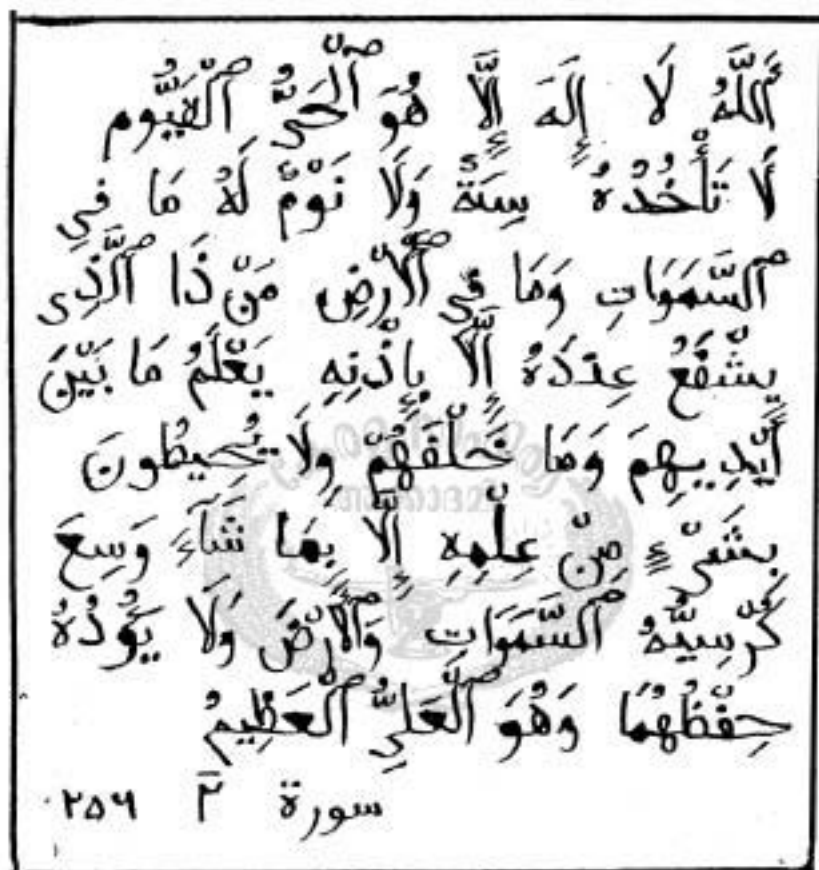 ٱللَّهُ لَا إِلَهَ إِلَّا هُوَ ٱلْحَىُّ ٱلْقَيُّوم
لَا تَأْخُذُهُ سِنَةٌ وَلَا نَوْمٌ لَهُ مَا فِي
ٱلسَّمَوَاتِ وَمَا فِي ٱلْأَرْضِ مَنْ ذَا ٱلَّذِى
يَشْفَعُ عِنْدَهُ إِلَّا بِإِذْنِهِ يَعْلَمُ مَا بَيْنَ
أَيْدِيهِمَ وَمَا خَلْفَهُمْ وَلَا يُحِيطُونَ
بِشَىْءٍ مِنْ عِلْمِهِ إِلَّا بِمَا شَآءَ وَسِعَ
كُرْسِيُّهُ ٱلسَّمَوَاتِ وَٱلْأَرْضَ وَلَا يَؤُدُهُ
حِفْظُهُمَا وَهُوَ ٱلْعَلِىُّ ٱلْعَظِيمُ
سورة ٢ ٢٥٦